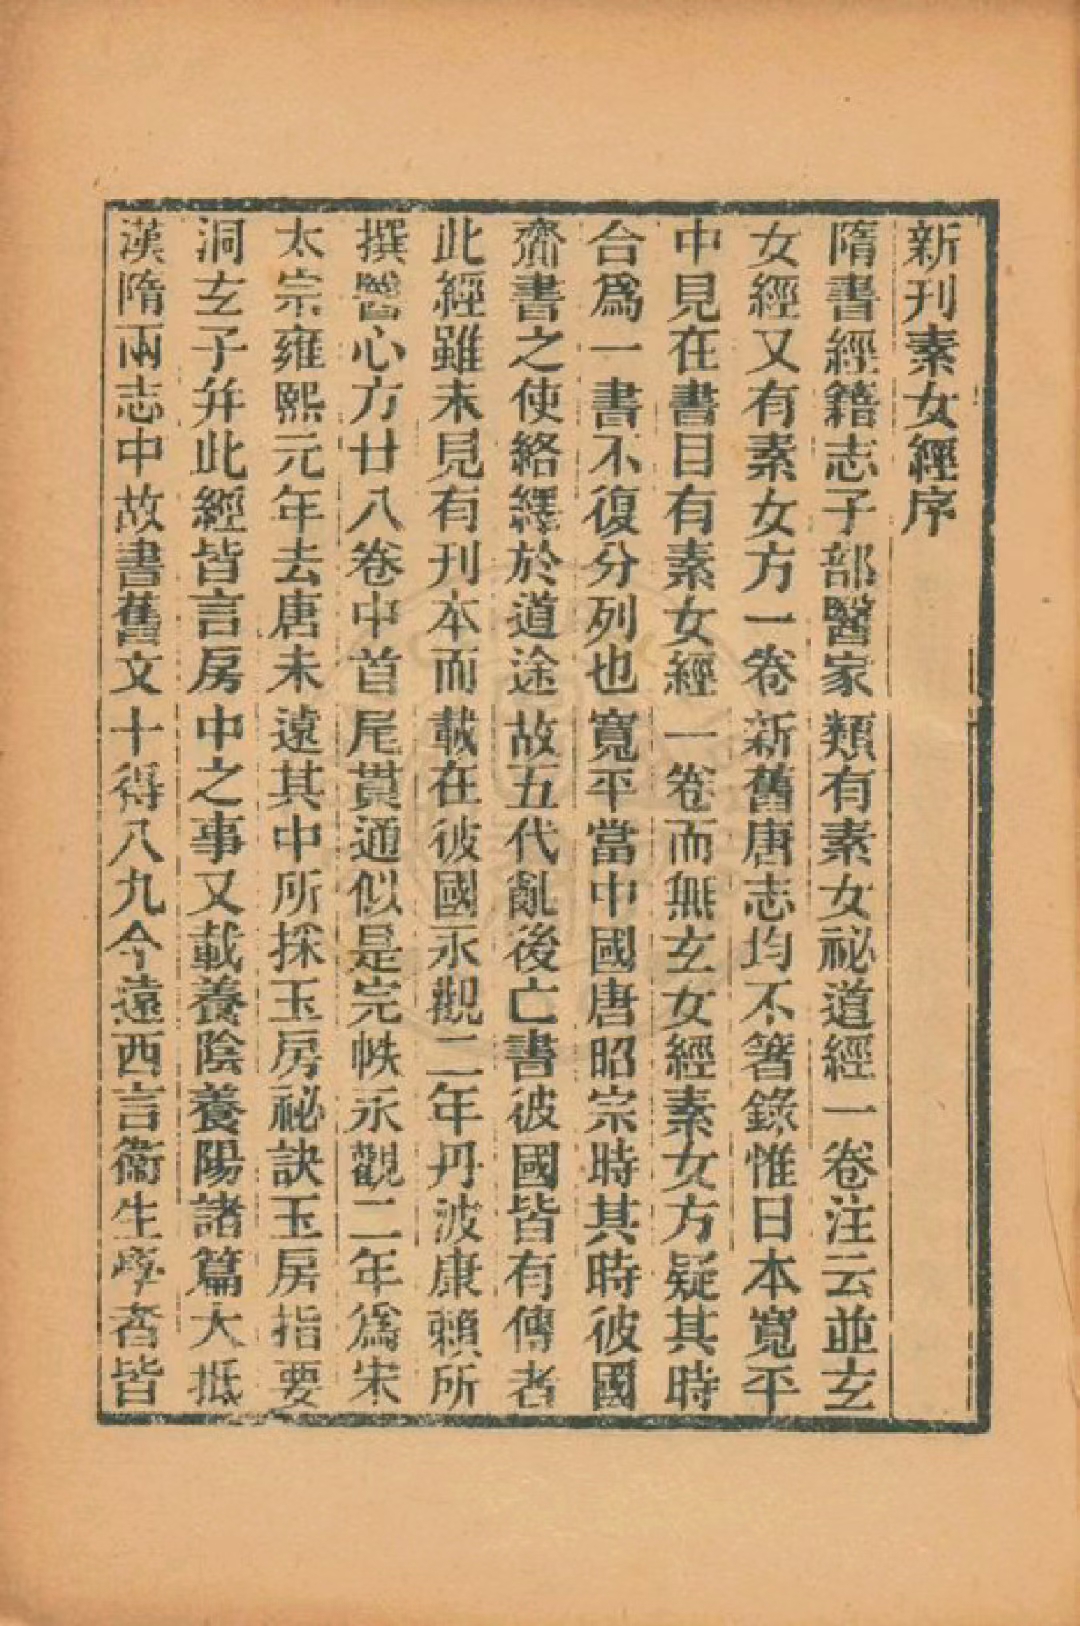 新刊素女經序
隋書經籍志子部醫家類有素女祕道經一卷注云並玄
女經又有素女方一卷新舊唐志均不箸錄惟日本寬平
中見在書目有素女經一卷而無玄女經素女方疑其時
合爲一書不復分列也寬平當中國唐昭宗時其時彼國
齎書之使絡繹於道途故五代亂後亡書彼國皆有傳者
此經雖未見有刊本而載在彼國永觀二年丹波康賴所
撰醫心方廿八卷中首尾貫通似是完帙永觀二年爲宋
太宗雍熙元年去唐未遠其中所採玉房祕訣玉房指要
洞玄子并此經皆言房中之事又載養陰養陽諸篇大抵
漢隋兩志中故書舊文十得八九今遠西言衞生學者皆